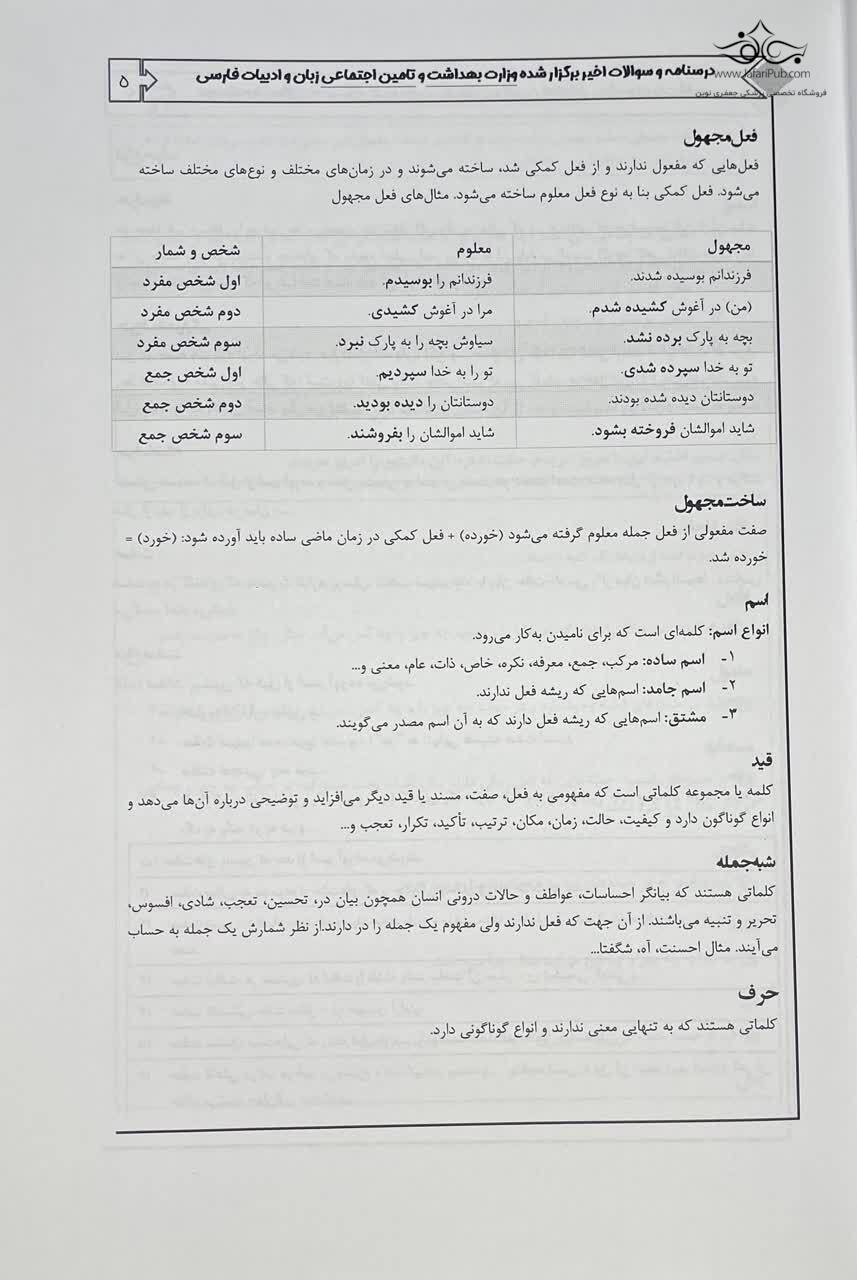 جعفری
www.JafariPub.com
فروشگاه تخصصی پزشکی جعفری نوین
درسنامه و سوالات اخیر برگزار شده وزارت بهداشت و تامین اجتماعی زبان و ادبیات فارسی
۵
فعل مجهول
فعل‌هایی که مفعول ندارند و از فعل کمکی شد، ساخته می‌شوند و در زمان‌های مختلف و نوع‌های مختلف ساخته
می‌شود. فعل کمکی بنا به نوع فعل معلوم ساخته می‌شود. مثال‌های فعل مجهول
مجهول معلوم شخص و شمار
فرزندانم بوسیده شدند. فرزندانم را بوسیدم. اول شخص مفرد
(من) در آغوش کشیده شدم. مرا در آغوش کشیدی. دوم شخص مفرد
بچه به پارک برده نشد. سیاوش بچه را به پارک نبرد. سوم شخص مفرد
تو به خدا سپرده شدی. تو را به خدا سپردیم. اول شخص جمع
دوستانتان دیده شده بودند. دوستانتان را دیده بودید. دوم شخص جمع
شاید اموالشان فروخته بشود. شاید اموالشان را بفروشند. سوم شخص جمع
ساخت مجهول
صفت مفعولی از فعل جمله معلوم گرفته می‌شود (خورده) + فعل کمکی در زمان ماضی ساده باید آورده شود: (خورد) =
خورده شد.
اسم
انواع اسم: کلمه‌ای است که برای نامیدن به‌کار می‌رود.
۱- اسم ساده: مرکب، جمع، معرفه، نکره، خاص، ذات، عام، معنی و...
۲- اسم جامد: اسم‌هایی که ریشه فعل ندارند.
۳- مشتق: اسم‌هایی که ریشه فعل دارند که به آن اسم مصدر می‌گویند.
قید
کلمه یا مجموعه کلماتی است که مفهومی به فعل، صفت، مسند یا قید دیگر می‌افزاید و توضیحی درباره آن‌ها می‌دهد و
انواع گوناگون دارد و کیفیت، حالت، زمان، مکان، ترتیب، تأکید، تکرار، تعجب و...
شبه‌جمله
کلماتی هستند که بیانگر احساسات، عواطف و حالات درونی انسان همچون بیان در، تحسین، تعجب، شادی، افسوس،
تحریر و تنبیه می‌باشند. از آن جهت که فعل ندارند ولی مفهوم یک جمله را در دارند.از نظر شمارش یک جمله به حساب
می‌آیند. مثال احسنت، آه، شگفتا...
حرف
کلماتی هستند که به تنهایی معنی ندارند و انواع گوناگونی دارد.